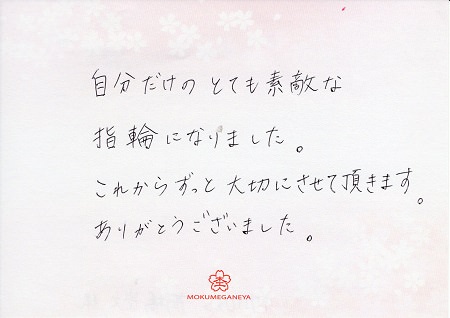 自分だけのとても素敵な
指輪になりました。
これからずっと大切にさせて頂きます。
ありがとうございました。
MOKUMEGANEYA